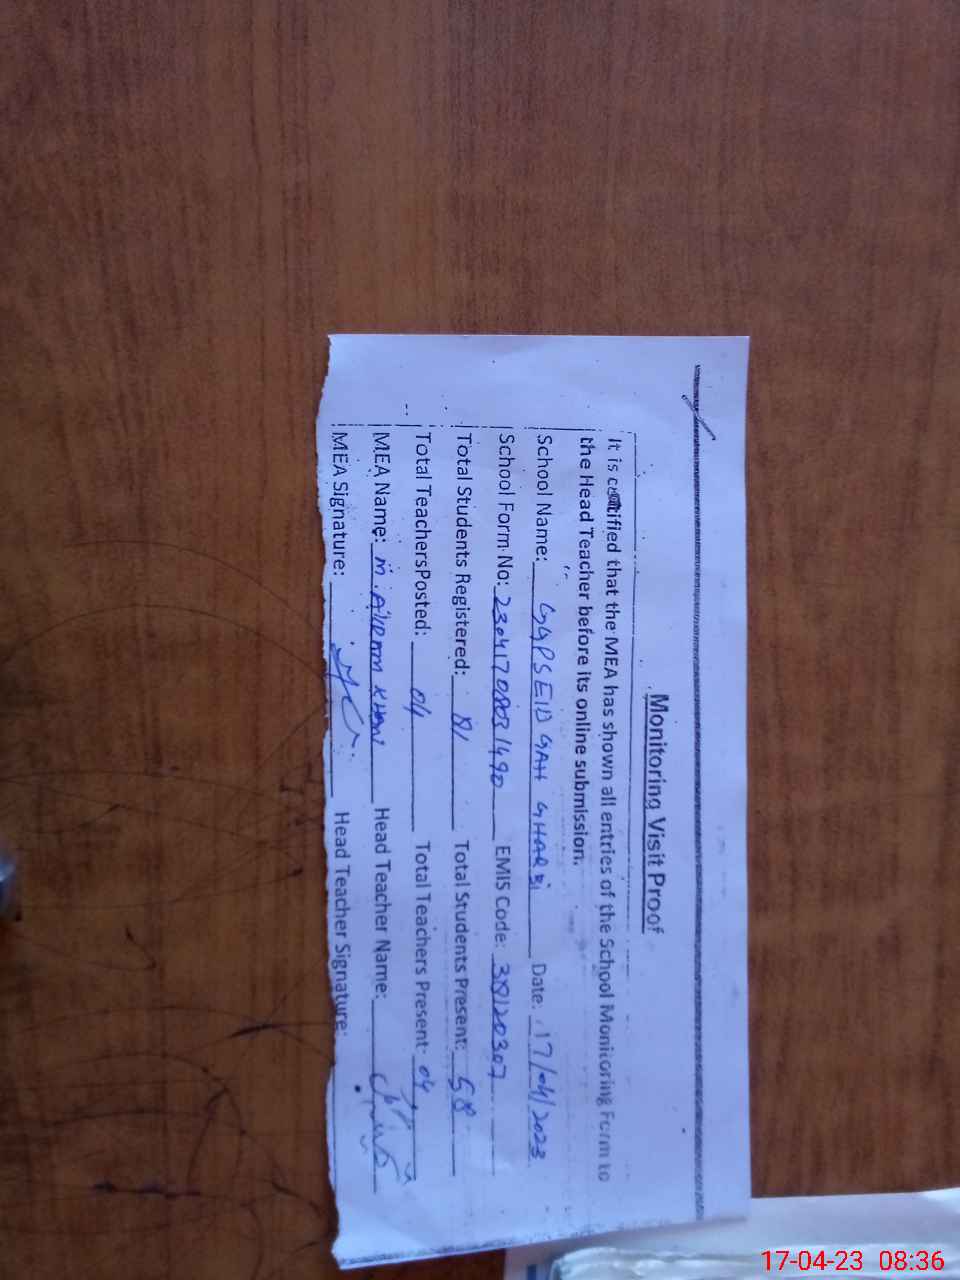 Monitoring Visit Proof
It is certified that the MEA has shown all entries of the School Monitoring Form to
the Head Teacher before its online submission.
School Name: GGPS EID GAH GHARBI Date: 17/04/2023
School Form No: EMIS Code:
Total Students Registered: 81 Total Students Present: 58
Total TeachersPosted: 04 Total Teachers Present: 04
MEA Name: M. AKRAM KHAN Head Teacher Name:
MEA Signature: Head Teacher Signature:
17-04-23 08:36